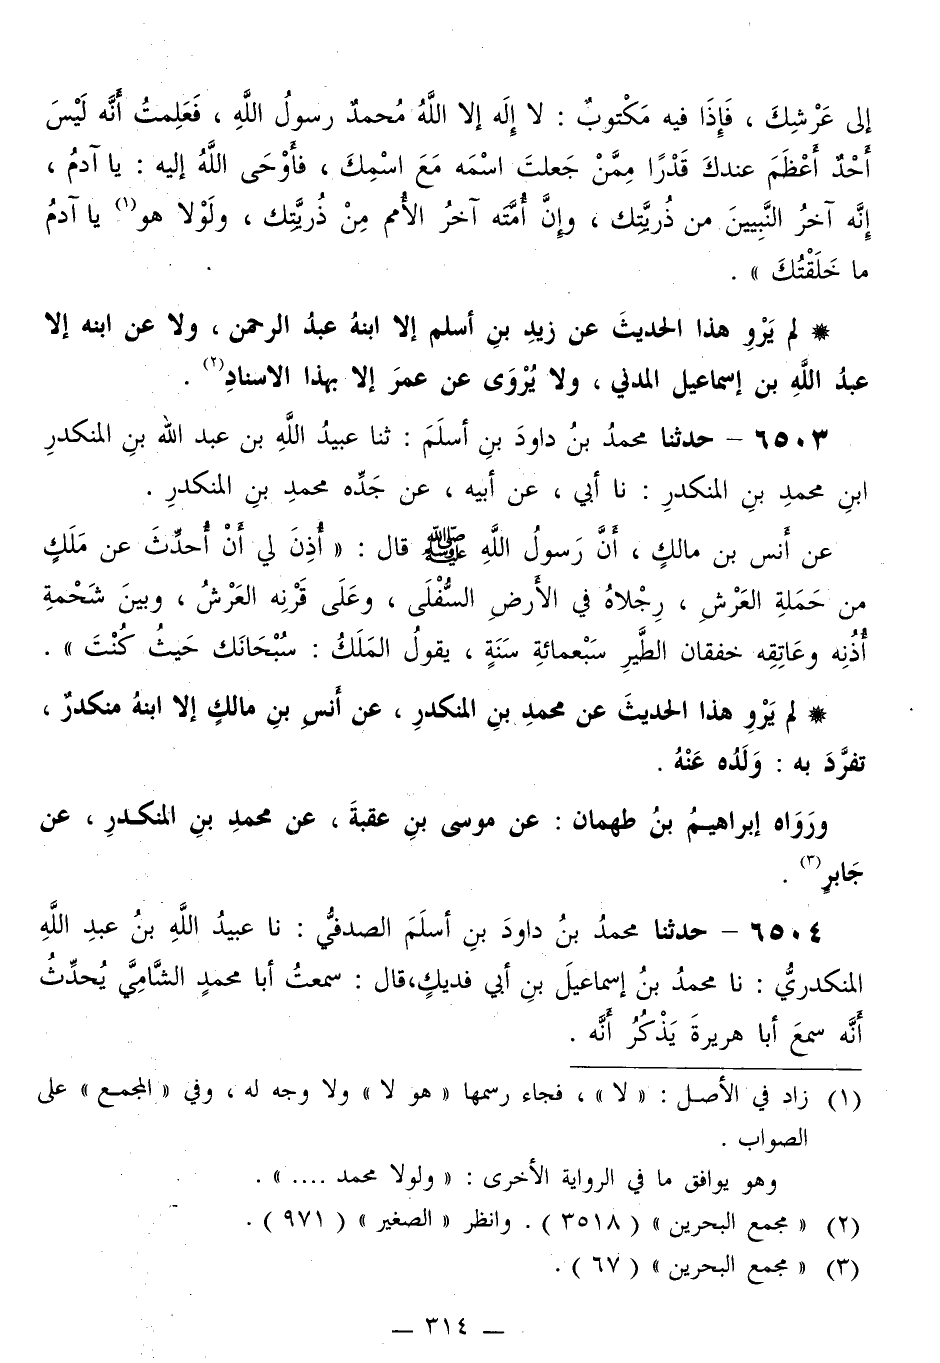 إلى عَرْشِكَ ، فَإِذَا فيه مَكْتوبٌ : لا إِلَه إلا اللَّهُ مُحمدٌ رسولُ اللَّهِ ، فَعَلِمتُ أَنَّه لَيْسَ
أَحْدٌ أَعْظَمَ عندكَ قَدْرًا مِمَّنْ جَعلتَ اسْمَه مَعَ اسْمِكَ ، فأَوْحَى اللَّهُ إليه : يا آدمُ ،
إنَّه آخرُ النَّبِيينَ من ذُريَّتِك ، وإنَّ أُمَّتَه آخرُ الأُمم مِنْ ذُريَّتِك ، ولَوْلا هو(١) يا آدمُ
ما خَلَقْتُكَ » .
* لم يَرْوِ هذا الحديثَ عن زيدِ بنِ أسلم إلا ابنهُ عبدُ الرحمن ، ولا عن ابنه إلا
عبدُ اللَّهِ بن إسماعيل المدني ، ولا يُرْوَى عن عمرَ إلا بهذا الاسنادِ(٢) .
٦٥٠٣ – حدثنا محمدُ بنُ داودَ بنِ أسلَمَ : ثنا عبيدُ اللَّهِ بن عبد الله بنِ المنكدرِ
ابنِ محمدِ بنِ المنكدرِ : نا أبي ، عن أبيه ، عن جَدِّه محمدِ بنِ المنكدرِ .
عن أَنس بن مالكٍ ، أَنَّ رَسولُ اللَّهِ ﷺ قال : « أُذِنَ لي أَنْ أُحدِّثَ عن مَلَكٍ
من حَمَلةِ العَرْشِ ، رِجْلاهُ في الأَرضِ السُّفْلَى ، وعَلَى قَرْنِه العَرْشُ ، وبينَ شَحْمةِ
أُذُنِه وعَاتِقِه خفقان الطَّيرِ سَبْعمائةِ سَنَةٍ ، يقولُ المَلَكُ : سُبْحَانَك حَيثُ كُنْتَ » .
* لم يَرْوِ هذا الحديثَ عن محمدِ بنِ المنكدرِ ، عن أَنسِ بنِ مالكٍ إلا ابنهُ منكدرٌ ،
تفرَّدَ به : وَلَدُه عَنْهُ .
ورَوَاه إبراهيمُ بنُ طهمان : عن موسى بنِ عقبةَ ، عن محمدِ بنِ المنكدرِ ، عن
جَابرٍ(٣) .
٦٥٠٤ – حدثنا محمدُ بنُ داودَ بنِ أسلَمَ الصدفيُّ : نا عبيدُ اللَّهِ بنُ عبدِ اللَّهِ
المنكدريُّ : نا محمدُ بنُ إسماعيلَ بنِ أبي فديكٍ،قال : سمعتُ أبا محمدٍ الشَّامِيَّ يُحدِّثُ
أَنَّه سمعَ أبا هريرةَ يَذْكُرُ أَنَّه .
(١) زاد في الأصل : « لا » ، فجاء رسمها « هو لا » ولا وجه له ، وفي « المجمع » على
الصواب .
وهو يوافق ما في الرواية الأخرى : « ولولا محمد .... » .
(٢) « مجمع البحرين » ( ٣٥١٨ ) . وانظر « الصغير » ( ٩٧١ ) .
(٣) « مجمع البحرين » ( ٦٧ ) .
— ٣١٤ —